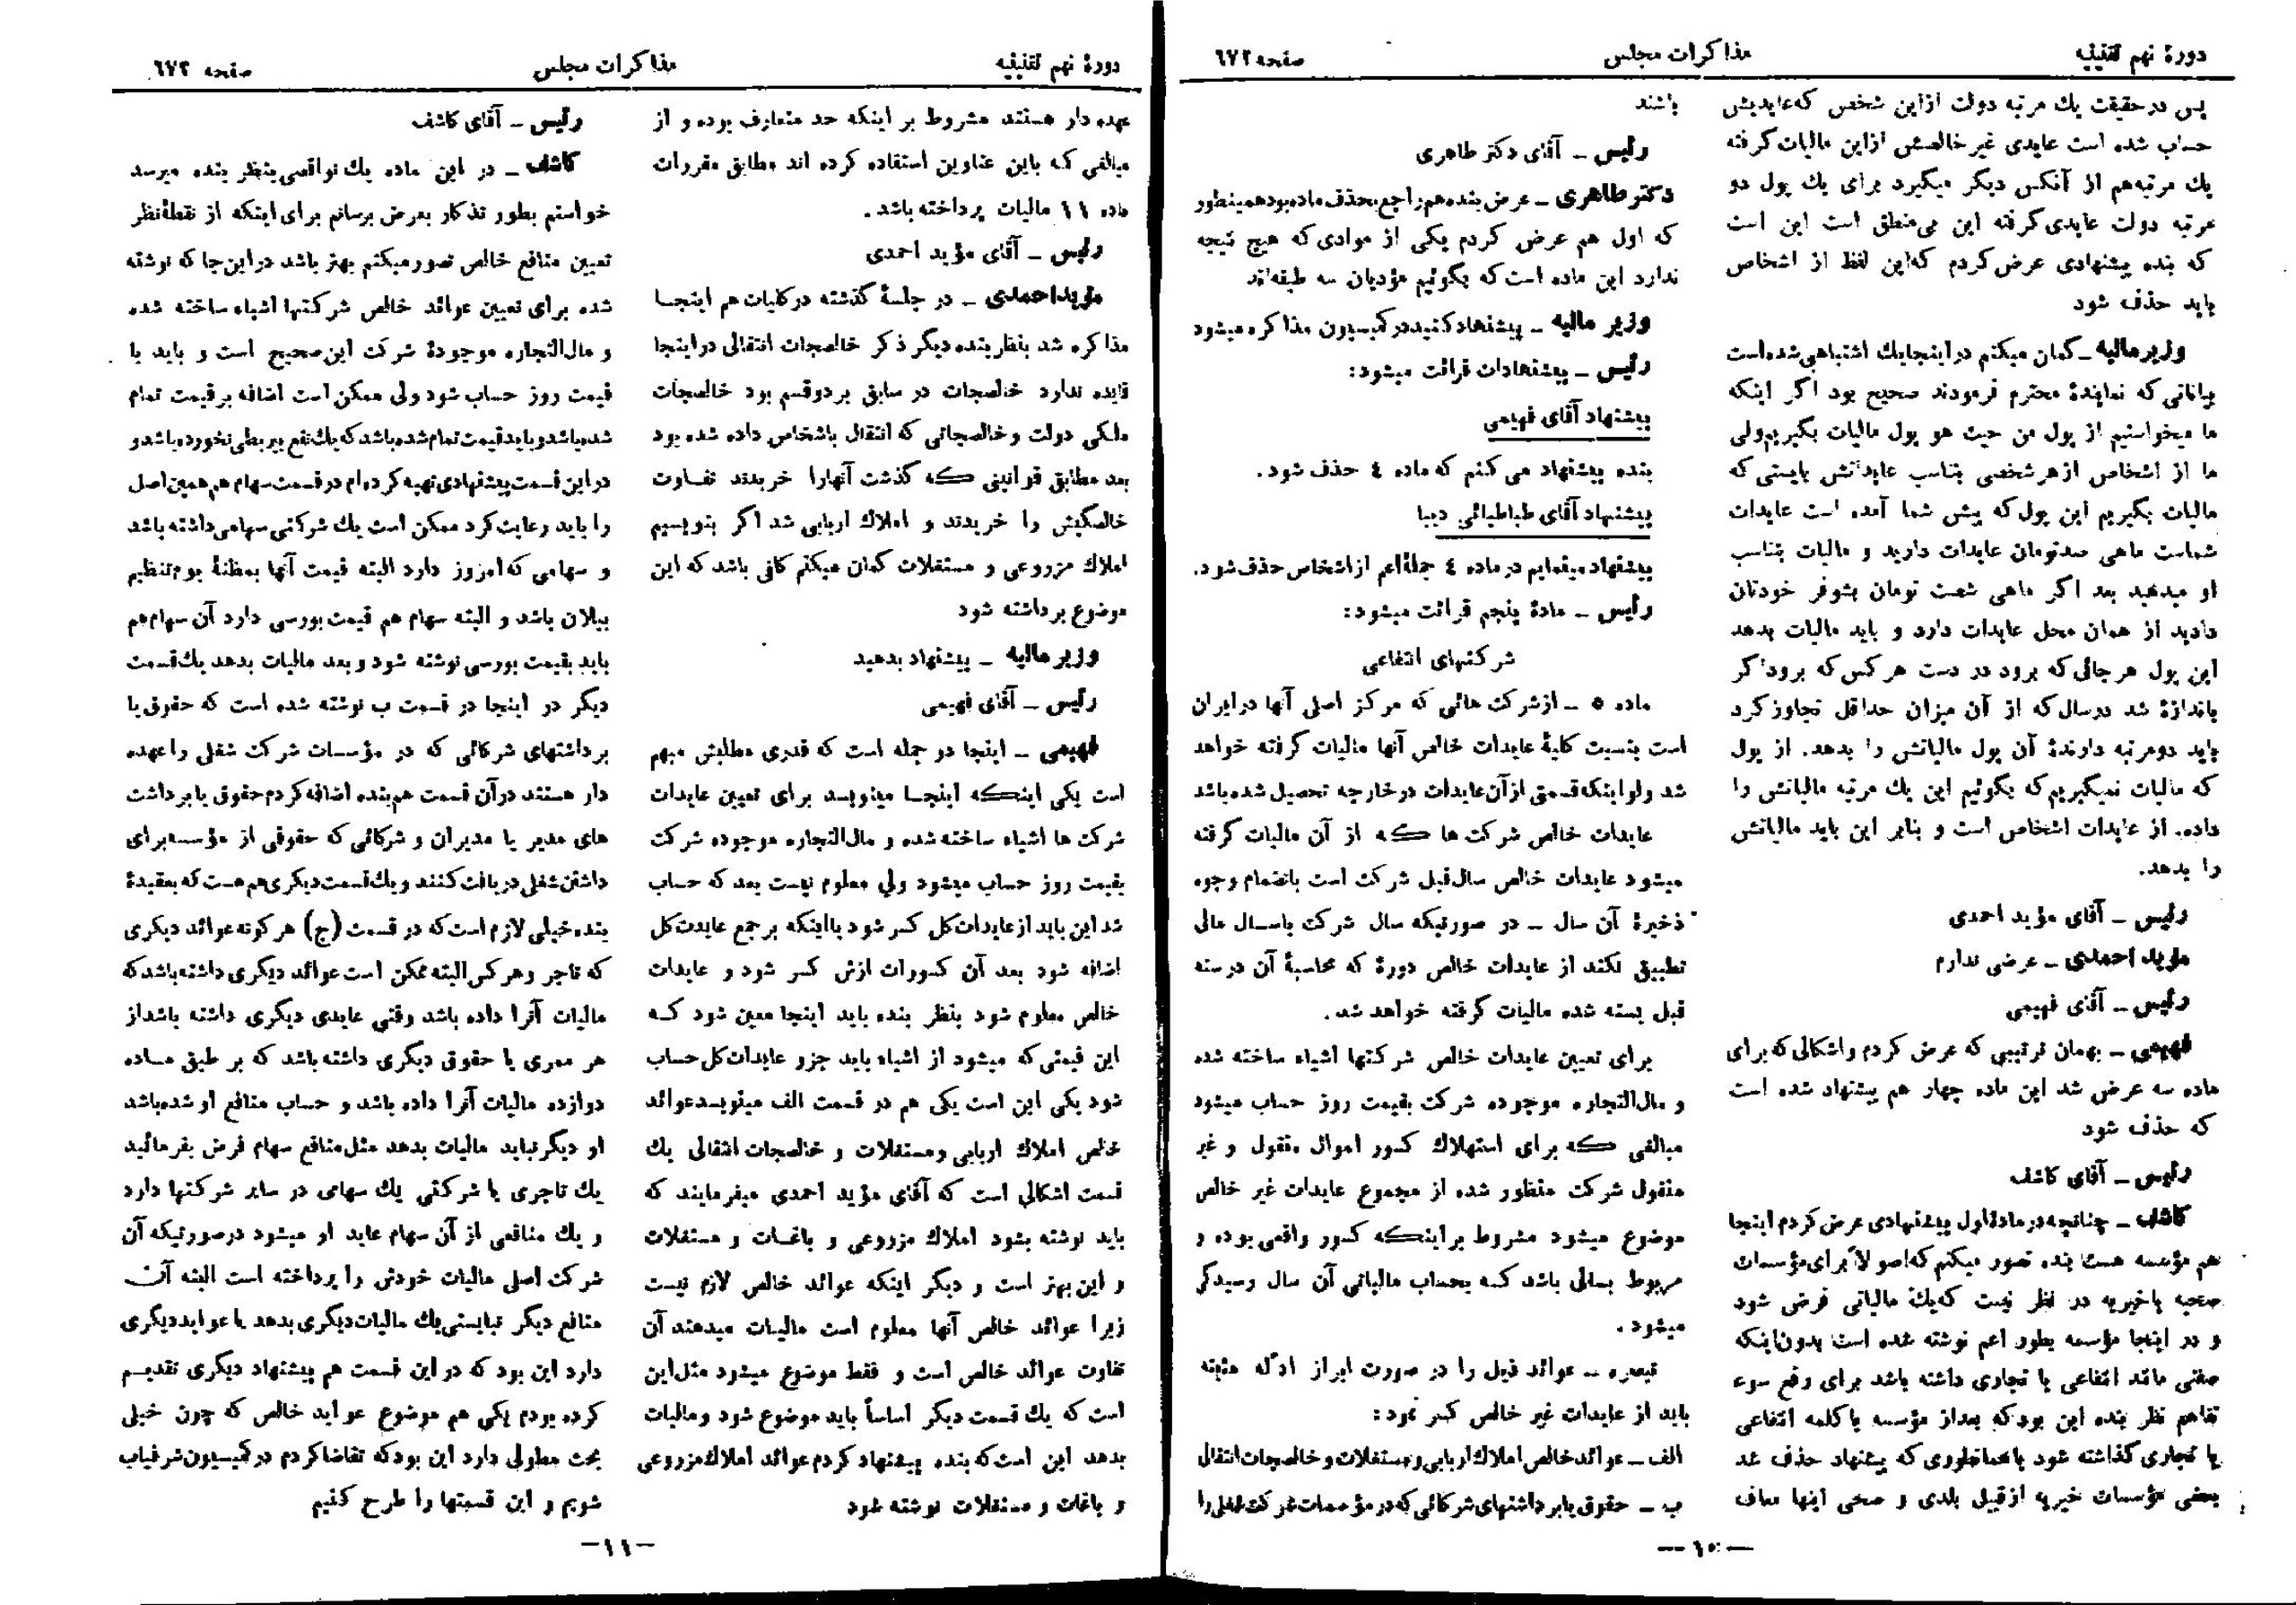 دورهٔ نهم تقنینیه
مذاکرات مجلس
صفحه ٦٧٢
پس درحقیقت یك مرتبه دولت ازاین شخص که‌عایدیش
حساب شده است عایدی غیر خالصش ازاین مالیات گرفته
یك مرتبه‌هم از آنکس دیگر میگیرد برای یك پول دو
مرتبه دولت عایدی گرفته این بی‌منطق است این است
که بنده پیشنهادی عرض کردم که‌این لفظ از اشخاص
باید حذف شود
وزیرمالیه ـ گمان میکنم دراینجایك اشتباهی شده‌است
بیاناتی که نمایندهٔ محترم فرمودند صحیح بود اگر اینکه
ما میخواستیم از پول من حیث هو پول مالیات بگیریم‌ولی
ما از اشخاص ازهرشخصی بتناسب عایداتش بایستی که
مالیات بگیریم این پول‌که پیش شما آمده است عایدات
شماست ماهی صدتومان عایدات دارید و مالیات بتناسب
او میدهید بعد اگر ماهی شصت تومان بشوفر خودتان
دادید از همان محل عایدات دارد و باید مالیات بدهد
این پول هرجائی‌که برود در دست هرکس‌که برود اگر
باندازهٔ شد درسال‌که از آن میزان حداقل تجاوز کرد
باید دومرتبه دارندهٔ آن پول مالیاتش را بدهد. از پول
که مالیات نمیگیریم‌که بگوئیم این یك مرتبه مالیاتش را
داده. از عایدات اشخاص است و بنابر این باید مالیاتش
را بدهد.
رئیس ـ آقای مؤید احمدی
مؤید احمدی ـ عرضی ندارم
رئیس ـ آقای فهیمی
فهیمی ـ بهمان ترتیبی که عرض کردم واشکالی‌که برای
ماده سه عرض شد این ماده چهار هم پیشنهاد شده است
که حذف شود
رئیس ـ آقای کاشف
کاشف ـ چنانچه درمادهٔ‌اول پیشنهادی عرض‌کردم اینجا
هم مؤسسه هست بنده تصور میکنم که‌اصولاً برای‌مؤسسات
صحیه یاخیریه در نظر نیست که‌یك مالیاتی فرض شود
و در اینجا مؤسسه بطور اعم نوشته شده است بدون‌اینکه
صفتی مانند انتفاعی یا تجاری داشته باشد برای رفع سوء
تفاهم نظر بنده این بودکه بعداز مؤسسه یاکلمه انتفاعی
یا تجاری گذاشته شود یا همانطوری که پیشنهاد حذف شد
بعضی مؤسسات خیریه ازقبیل بلدی و صحی اینها معاف
باشند
رئیس ـ آقای دکتر طاهری
دکترطاهری ـ عرض‌بنده‌هم‌راجع‌بحذف‌ماده‌بودهمینطور
که اول هم عرض کردم یکی از موادی‌که هیچ نتیجه
ندارد این ماده است‌که بگوئیم مؤدیان سه طبقه‌اند
وزیر مالیه ـ پیشنهادکنیددرکمیسیون مذاکره‌میشود
رئیس ـ پیشنهادات قرائت میشود:
پیشنهاد آقای فهیمی
بنده پیشنهاد می‌کنم که ماده ٤ حذف شود.
پیشنهاد آقای طباطبائی دیبا
پیشنهادمینمایم درماده ٤ جملهٔ‌اعم ازاشخاص حذف‌شود.
رئیس ـ مادهٔ پنجم قرائت میشود:
شرکتهای انتفاعی
ماده ٥ ـ ازشرکت هائی که مرکز اصلی آنها درایران
است بنسبت کلیهٔ عایدات خالص آنها مالیات گرفته خواهد
شد ولواینکه‌قسمتی ازآن‌عایدات درخارجه تحصیل شده‌باشد
عایدات خالص شرکت ها که از آن مالیات گرفته
میشود عایدات خالص سال‌قبل شرکت است بانضمام وجوه
ذخیرهٔ آن سال ـ در صورتیکه سال شرکت باسال مالی
تطبیق نکند از عایدات خالص دورهٔ که محاسبهٔ آن درسنه
قبل بسته شده مالیات گرفته خواهد شد.
برای تعیین عایدات خالص شرکتها اشیاء ساخته شده
و مال‌التجاره موجوده شرکت بقیمت روز حساب میشود
مبالغی که برای استهلاك کسور اموال منقول و غیر
منقول شرکت منظور شده از مجموع عایدات غیر خالص
موضوع میشود مشروط براینکه کسور واقعی بوده و
مربوط بسالی باشد که بحساب مالیاتی آن سال رسیدگی
میشود.
تبصره ـ عوائد ذیل را در صورت ابراز ادله مثبته
باید از عایدات غیر خالص کسر نمود:
الف ـ عوائدخالص‌املاك‌اربابی‌ومستغلات‌وخالصجات‌انتقالی
ب ـ حقوق‌یابرداشتهای‌شرکائی‌که‌درمؤسسات‌شرکت‌شغلی‌را
ـ ١٠ ـ
دورهٔ نهم تقنینیه
مذاکرات مجلس
صفحه ٦٧٣
عهده‌دار هستند مشروط بر اینکه حد متعارف بوده و از
مبالغی که باین عناوین استفاده کرده اند مطابق مقررات
ماده ١١ مالیات پرداخته باشد.
رئیس ـ آقای مؤید احمدی
مؤیداحمدی ـ در جلسهٔ گذشته درکلیات هم اینجا
مذاکره شد بنظر بنده دیگر ذکر خالصجات انتقالی دراینجا
فایده ندارد خالصجات در سابق بردوقسم بود خالصجات
ملکی دولت و خالصجاتی که انتقال باشخاص داده شده بود
بعد مطابق قوانینی که گذشت آنهارا خریدند تفاوت
خالصگیش را خریدند و املاك اربابی شد اگر بنویسیم
املاك مزروعی و مستغلات گمان میکنم کافی باشد که این
موضوع برداشته شود
وزیر مالیه ـ پیشنهاد بدهید
رئیس ـ آقای فهیمی
فهیمی ـ اینجا دو جمله است که قدری مطلبش مبهم
است یکی اینکه اینجا مینویسد برای تعیین عایدات
شرکت ها اشیاء ساخته شده و مال‌التجاره موجوده شرکت
بقیمت روز حساب میشود ولی معلوم نیست بعد که حساب
شداین باید ازعایدات‌کل کسر شود یااینکه برجمع عایدت‌کل
اضافه شود بعد آن کسورات ازش کسر شود و عایدات
خالص معلوم شود بنظر بنده باید اینجا معین شود که
این قیمتی‌که میشود از اشیاء باید جزو عایدات‌کل‌حساب
شود یکی این است یکی هم در قسمت الف مینویسدعوائد
خالص املاك اربابی ومستغلات و خالصجات انتقالی یك
قسمت اشکالی است که آقای مؤید احمدی میفرمایند که
باید نوشته بشود املاك مزروعی و باغات و مستغلات
و این بهتر است و دیگر اینکه عوائد خالص لازم نیست
زیرا عوائد خالص آنها معلوم است مالیات میدهند آن
تفاوت عوائد خالص است و فقط موضوع میشود مثل‌این
است که یك قسمت دیگر اساساً باید موضوع شود ومالیات
بدهد این است‌که بنده پیشنهاد کردم عوائد املاك‌مزروعی
و باغات و مستغلات نوشته شود
رئیس ـ آقای کاشف
کاشف ـ در این ماده یك نواقصی بنظر بنده میرسد
خواستم بطور تذکار بعرض برسانم برای اینکه از نقطهٔ‌نظر
تعیین منافع خالص تصورمیکنم بهتر باشد دراین‌جا که نوشته
شده برای تعیین عوائد خالص شرکتها اشیاء ساخته شده
و مال‌التجاره موجودهٔ شرکت این‌صحیح است و باید با
قیمت روز حساب شود ولی ممکن است اضافه برقیمت تمام
شده‌باشدوبایدقیمت‌تمام‌شده‌باشدکه‌یك‌نفع‌بیربطی‌نخورده‌باشدو
دراین قسمت‌پیشنهادی‌تهیه‌کرده‌ام درقسمت‌سهام هم‌همین‌اصل
را باید رعایت‌کرد ممکن است یك شرکتی سهامی‌داشته‌باشد
و سهامی که‌امروز دارد البته قیمت آنها بمظنهٔ یوم‌تنظیم
بیلان باشد و البته سهام هم قیمت بورسی دارد آن سهام‌هم
باید بقیمت بورسی نوشته شود و بعد مالیات بدهد یك‌قسمت
دیگر در اینجا در قسمت ب نوشته شده است که حقوق‌یا
برداشتهای شرکائی که در مؤسسات شرکت شغلی راعهده
دار هستند درآن قسمت هم‌بنده اضافه‌کردم‌حقوق یابرداشت
های مدیر یا مدیران و شرکائی که حقوقی از مؤسسه‌برای
داشتن‌شغلی دریافت‌کنند ویك‌قسمت‌دیگری‌هم‌هست‌که‌بعقیدهٔ
بنده‌خیلی لازم‌است‌که در قسمت (ج) هرگونه‌عوائد دیگری
که تاجر وهرکس‌البته ممکن است عوائد دیگری داشته‌باشدکه
مالیات آنرا داده باشد وقتی عایدی دیگری داشته باشداز
هر ممری یا حقوق دیگری داشته‌باشد که بر طبق ماده
دوازده مالیات آنرا داده باشد و حساب منافع او شده‌باشد
او دیگرنباید مالیات بدهد مثل‌منافع سهام فرض بفرمائید
یك تاجری یا شرکتی یك سهامی در سایر شرکتها دارد
و یك منافعی از آن سهام عاید او میشود درصورتیکه آن
شرکت اصلی مالیات خودش را پرداخته است البته آن
منافع دیگر نبایستی‌یك مالیات‌دیگری‌بدهد یاعوایددیگری
دارد این بود که در این قسمت هم پیشنهاد دیگری تقدیم
کرده بودم یکی هم موضوع عواید خالص که چون خیلی
بحث مطولی دارد این بودکه تقاضاکردم درکمیسیون‌شرفیاب
شویم و این قسمتها را طرح کنیم
ـ١١ـ